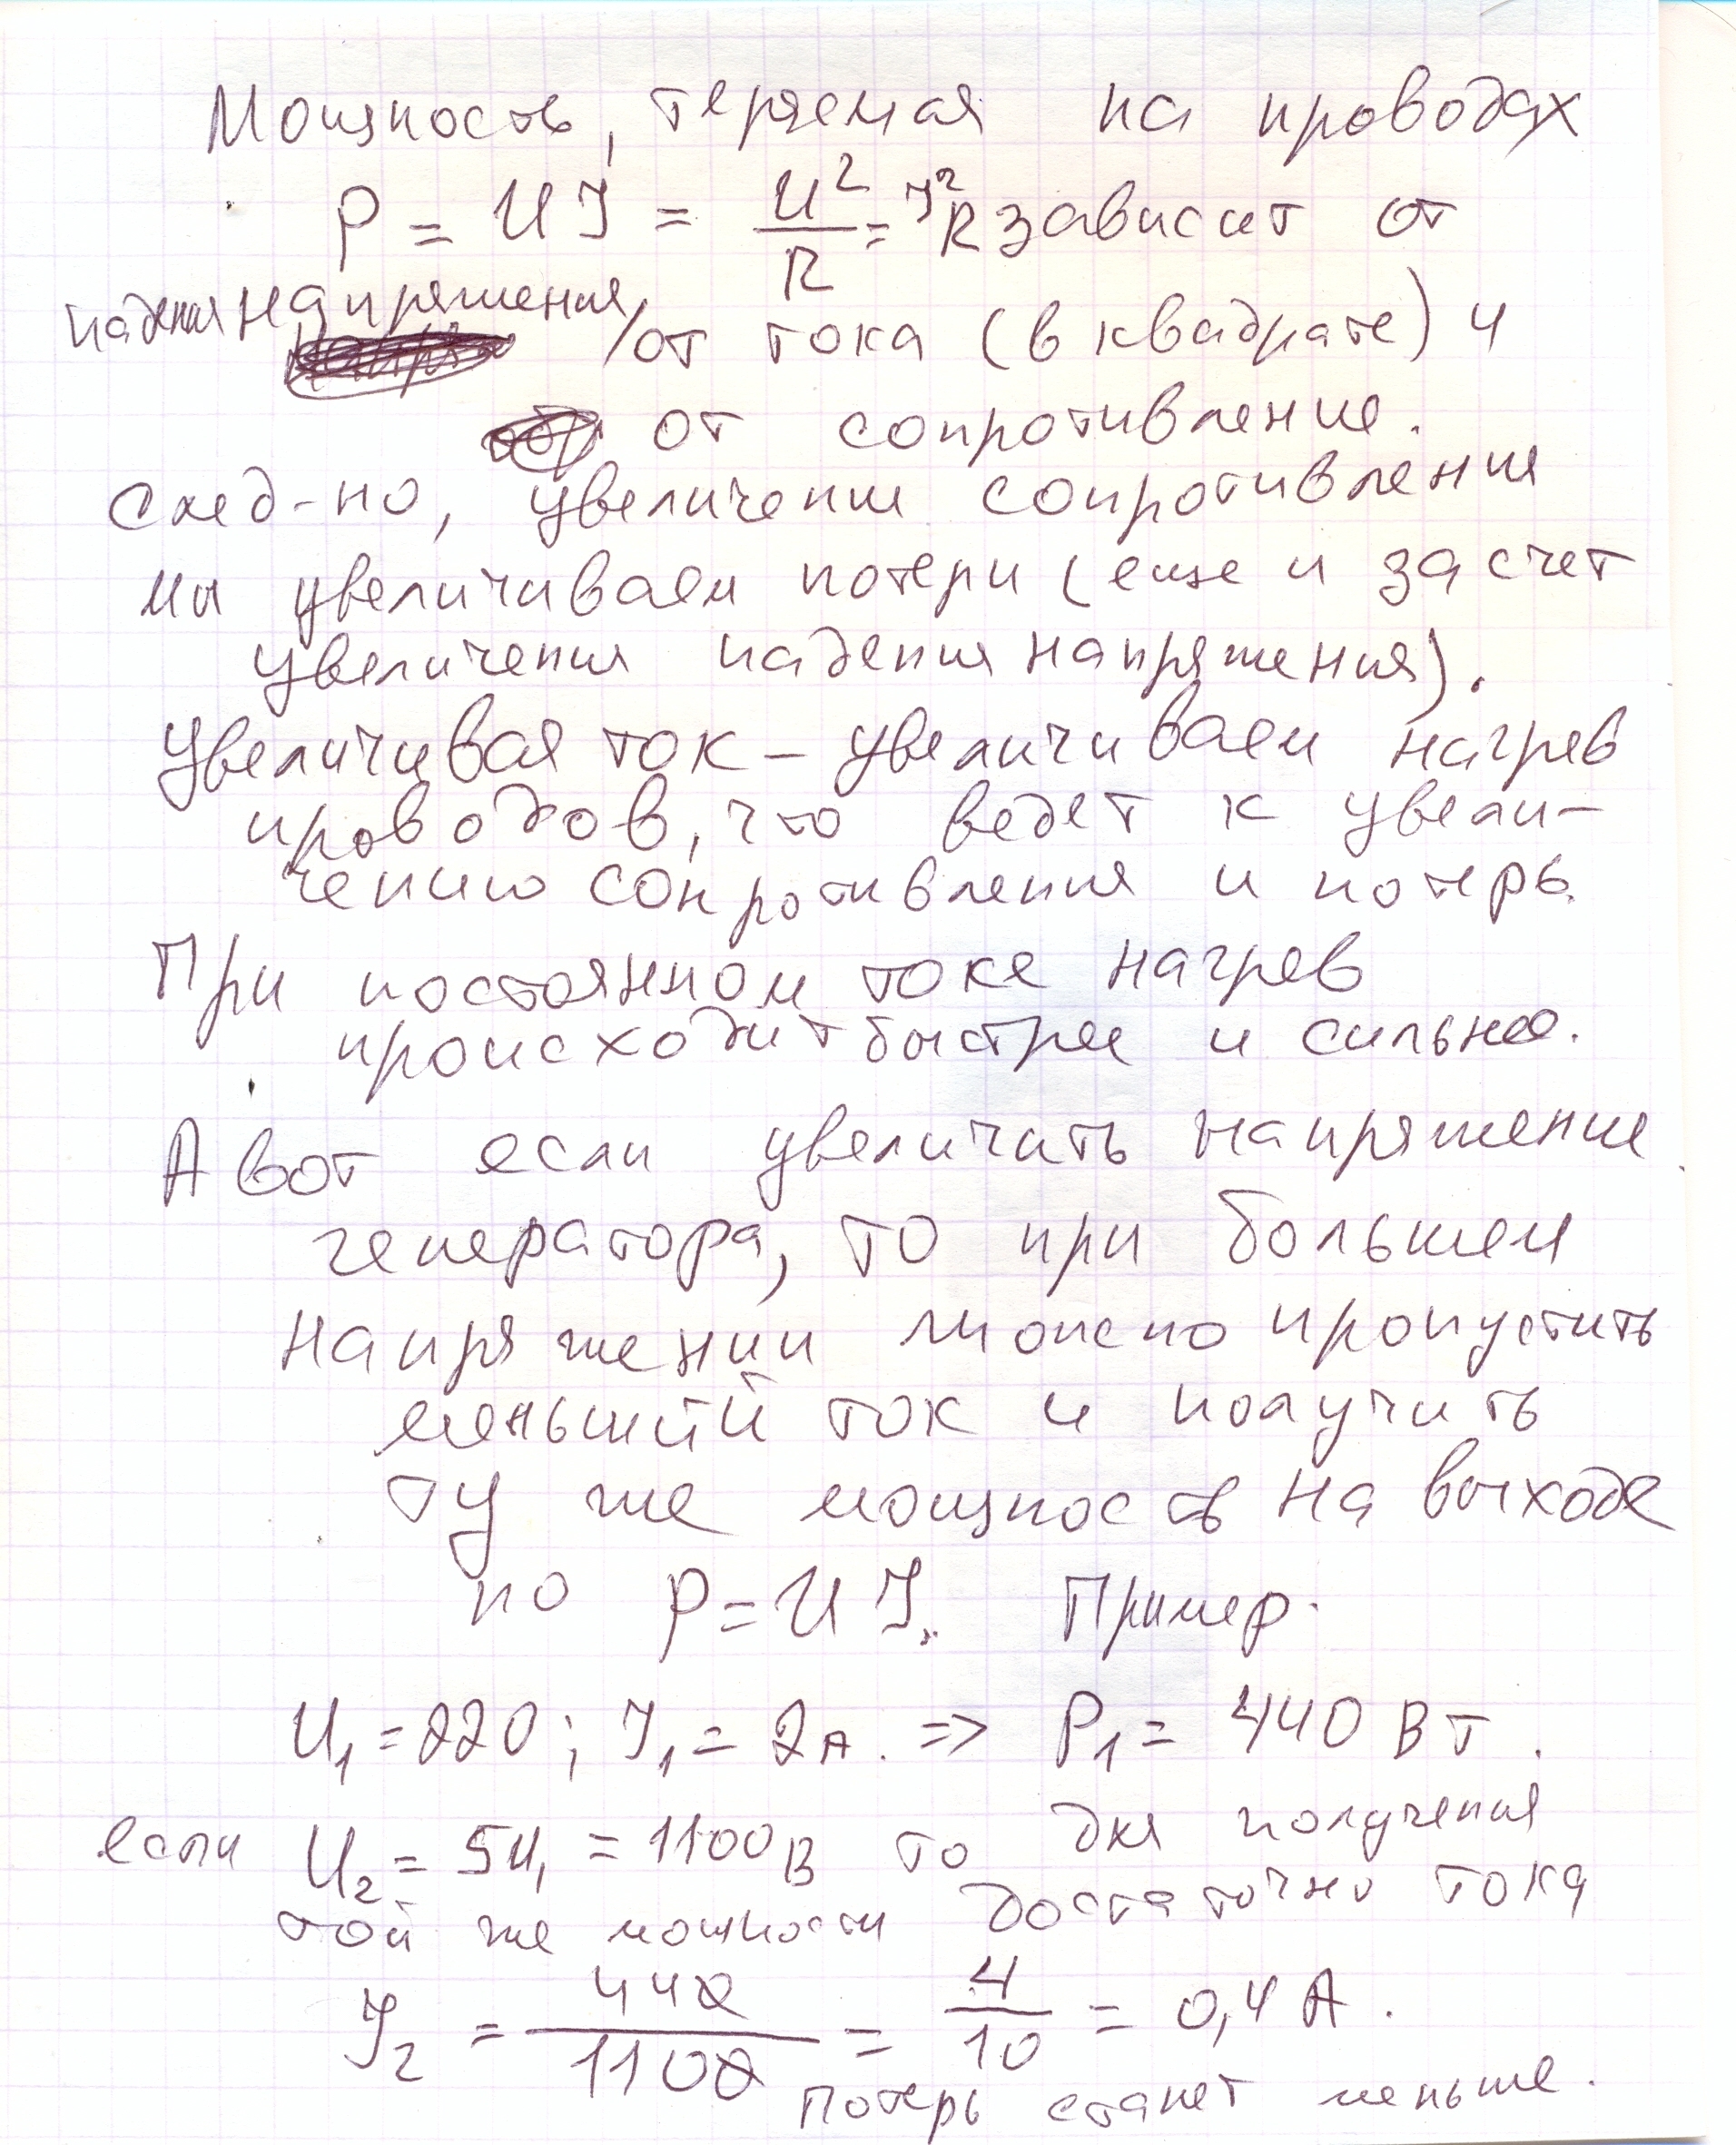 Мощность, теряемая на проводах
P = UI = U²/R = I²R зависит от
падения напряжения/от тока (в квадрате) и
от сопротивление.
След-но, увеличении сопротивления
мы увеличиваем потери (еще и за счет
увеличения падения напряжения).
Увеличивая ток – увеличиваем нагрев
проводов, что ведет к увели-
чению сопротивления и потерь.
При постоянном токе нагрев
происходит быстрее и сильнее.
А вот если увеличить напряжение
генератора, то при большем
напряжении можно пропустить
меньший ток и получить
ту же мощность на выходе
по P = UI. Пример.
U₁ = 220; I₁ = 2А. => P₁ = 440 Вт.
если U₂ = 5U₁ = 1100В то для получения
той же мощности достаточно тока
I₂ = 440/1100 = 4/10 = 0,4 А.
Потерь станет меньше.